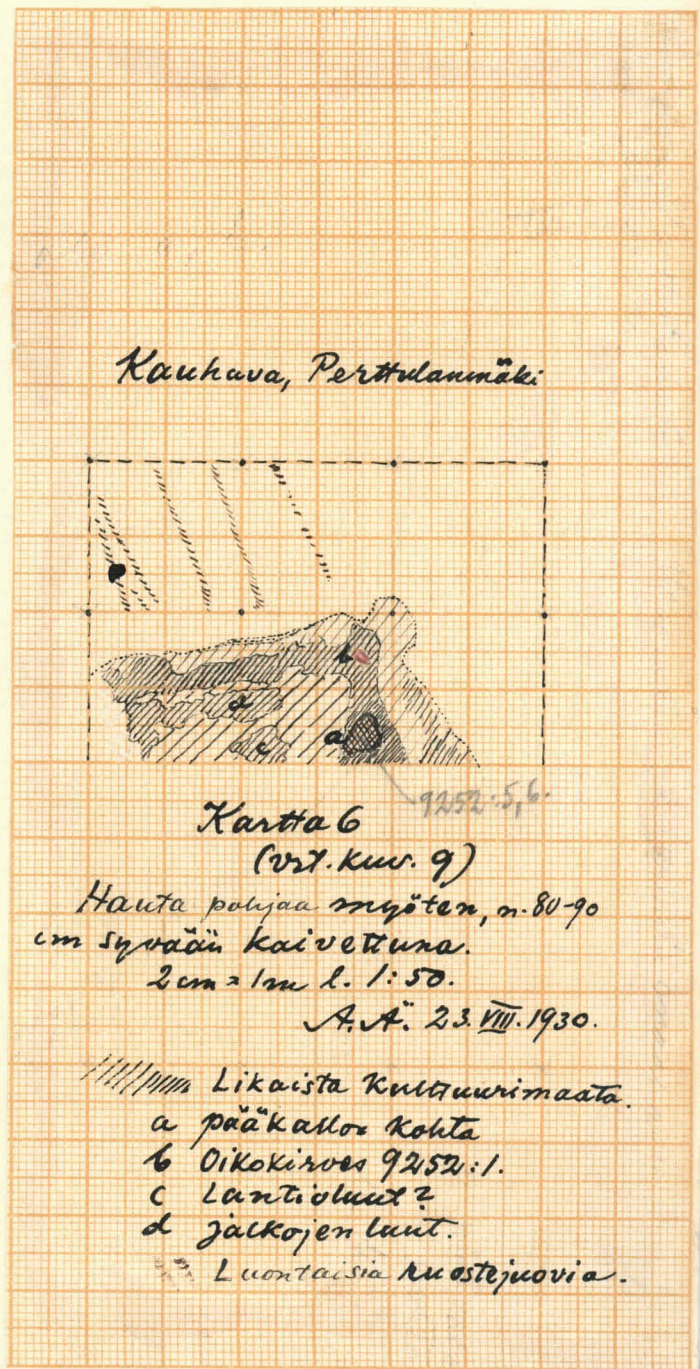 Kauhava, Perttulanmäki
b
d
c
a
9252:5,6.
Kartta 6
(vrt. kuv. 9)
Hauta pohjaa myöten, n. 80-90
cm syvään kaivettuna.
2 cm = 1 m l. 1:50.
A. Ä. 23.VIII.1930.
Likaista kulttuurimaata.
a pääkallon kohta
b Oikokirves 9252:1.
c Lantioluut?
d jalkojen luut.
Luontaisia ruostejuovia.